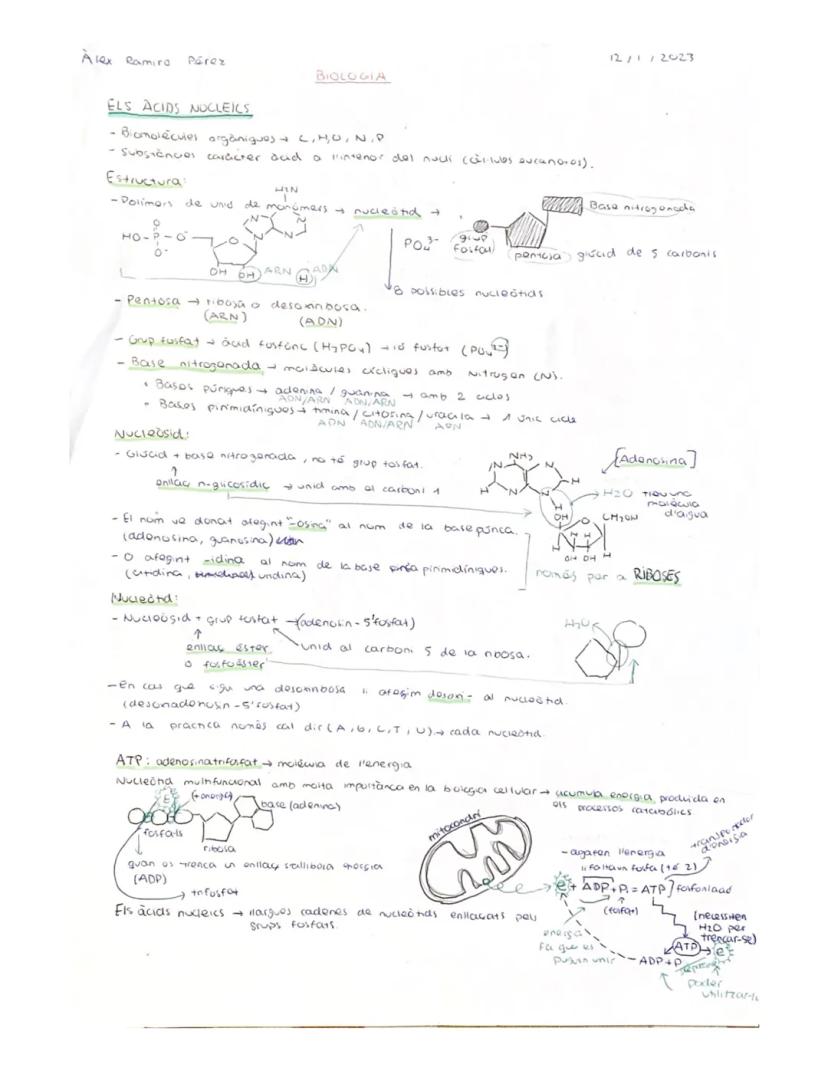 Àlex Ramiro Pérez
12/1/2023
BIOLOGIA
ELS ÀCIDS NUCLEICS
- Biomolècules orgàniques → C, H, O, N, P
- Substàncies caràcter àcid a l'interior del nucli (cèl·lules eucariotes).
Estructura:
- Polímers de unió de monòmers → nucleòtid →
Base nitrogenada
PO₄³⁻
grup fosfat
pentosa
glúcid de 5 carbonis
NH₂
N
N
N
N
HO-P-O
O
O⁻
O
OH
OH
ARN
H
ADN
8 possibles nucleòtids
- Pentosa → ribosa o desoxiribosa.
(ARN) (ADN)
- Grup fosfat → àcid fosfòric (H₃PO₄) → ió fosfat (PO₄³⁻)
- Base nitrogenada → molècules cícliques amb Nitrogen (N).
• Bases púriques → adenina / guanina → amb 2 cicles
ADN/ARN ADN/ARN
• Bases pirimidíniques → timina / citosina / uracila → 1 únic cicle
ADN ADN/ARN
Nucleòsid:
- Glúcid + base nitrogenada, no té grup fosfat.
enllaç n-glicosídic → unió amb el carboni 1
[Adenosina]
NH₂
N
N
N
N
H
H
H
OH
→ H2O treu una molècula d'aigua
O
CH₂OH
H
H
OH OH
H
- El nom ve donat afegint "-osina" al nom de la base púrica.
(adenosina, guanosina)
- O afegint -idina al nom de la base pirimidíniques.
(citidina, uridina)
només per a RIBOSES
Nucleòtid:
- Nucleòsid + grup fosfat → (adenosin-5'fosfat)
enllaç èster
o fosfoèster
unió al carboni 5 de la ribosa.
H₂O
- En cas que sigui una desoxiribosa li afegim desoxi- al nucleòtid.
(desoxiadenosin-5'fosfat)
- A la pràctica només cal dir (A, G, C, T, U) → cada nucleòtid.
ATP: adenosinatrifosfat → molècula de l'energia
Nucleòtid multifuncional amb molta importància en la biologia cel·lular → acumula energia produida en
els processos catabòlics
E
(+energia)
base (adenina)
fosfats
ribosa
quan es trenca un enllaç s'allibera energia
(ADP)
→ trifosfat
mitocondri
- agafen l'energia
li falta un fosfat (té 2)
transportador d'energia
e⁻ + ADP + Pi = ATP] fosforilació
(fosfat)
energia
fa que es
puguin unir
(necessiten
H2O per
trencar-se)
ATP → e⁻
ADP + P
poder
utilitzar-la
Els àcids nucleics → llargues cadenes de nucleòtids enllaçats pels
grups fosfats.